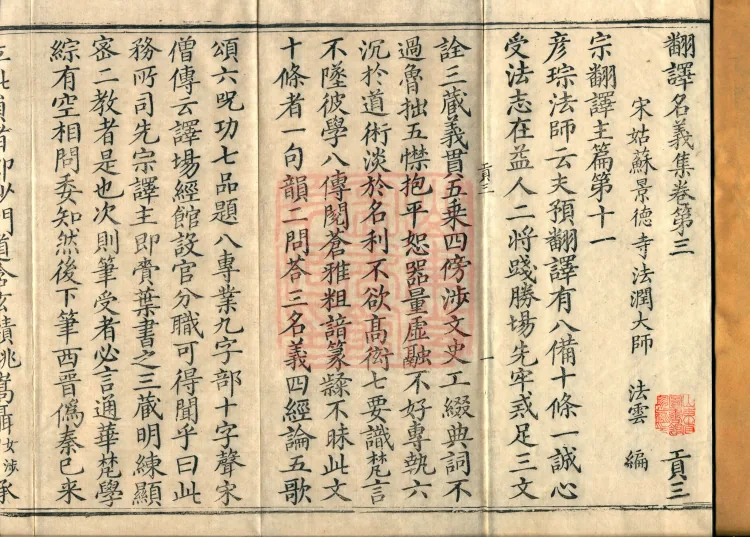 翻譯名義集卷第三 貢三
宋姑蘇景德寺法潤大師 法雲 編
宗翻譯主篇第十一
彥琮法師云夫預翻譯有八備十條一誠心
受法志在益人二將踐勝場先牢戒足三文
貢三 一
詮三藏義貫五乘四傍涉文史工綴典詞不
過魯拙五襟抱平恕器量虛融不好專執六
沉於道術淡於名利不欲高衒七要識梵言
不墜彼學八傳閱蒼雅粗諳篆隸不昧此文
十條者一句韻二問荅三名義四經論五歌
頌六呪功七品題八專業九字部十字聲宋
僧傳云譯場經館設官分職可得聞乎曰此
務所司先宗譯主即賷葉書之三藏明練顯
宻二教者是也次則筆受者必言通華梵學
綜有空相問委知然後下筆西晉偽秦已来
立此員者即沙門道含玄賾姚嵩聶女涉承